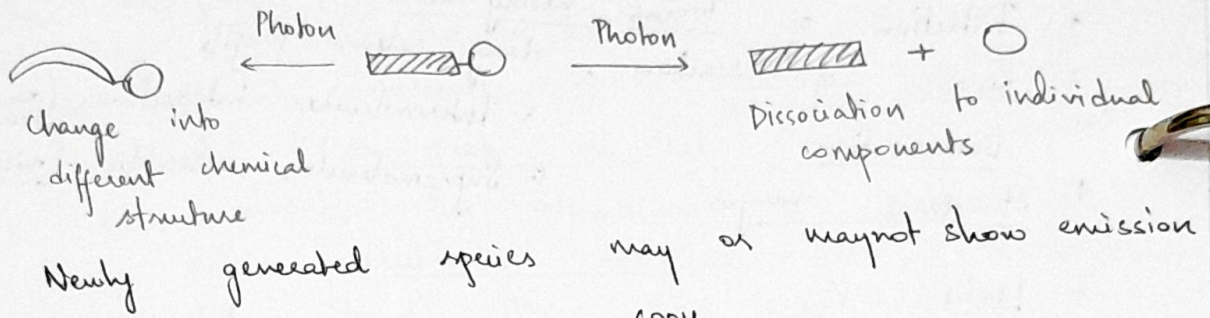 Photon
Photon
+
change into
different chemical
structure
Dissociation to individual
components
Newly generated species may or maynot show emission